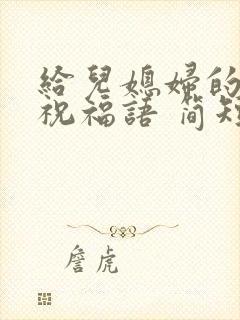 給兒媳婦的
祝福語 簡短
詹虎